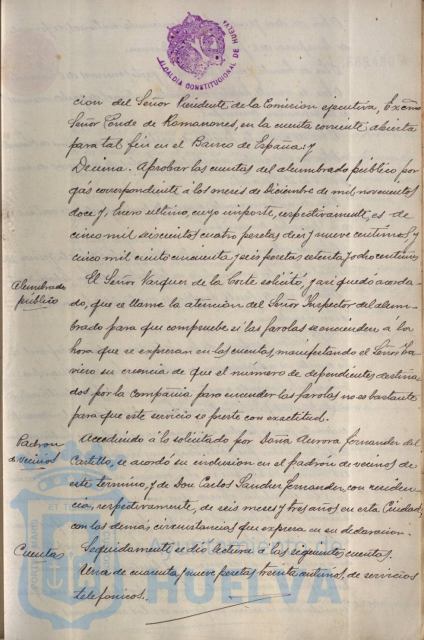 ALCALDIA CONSTITUCIONAL DE HUELVA
cion del Señor Presidente de la Comision ejecutiva, Excmo
Señor Conde de Romanones, en la cuenta corriente abierta
para tal fin en el Banco de España: y
Decima. Aprobar las cuentas del alumbrado público por
gas correspondiente á los meses de Diciembre de mil novecientos
doce y Enero ultimo, cuyo importe, respectivamente, es de
cinco mil seiscientos cuatro pesetas diez y nueve centimos y
cinco mil ciento cincuenta y seis pesetas setenta y ocho centimos
Alumbrado
público
El Señor Vazquez de la Corte solicitó, y asi quedó acorda-
do, que se llame la atencion del Señor Inspector del alum-
brado para que compruebe si las farolas se encienden á la
hora que se expresan en las cuentas, manifestando el Señor
su creencia de que el número de dependientes destina-
dos por la Compañia para encender las farolas no es bastante
para que este servicio se preste con exactitud.
Padron
de vecinos
Accediendo á lo solicitado por Doña Aurora Fernandez del
Castillo, se acordó su inclusion en el padrón de vecinos de
este termino, y de Don Carlos Sanchez Fernandez, con residen-
cia, respectivamente, de seis meses y tres años en esta Ciudad,
con las demás circunstancias que expresa en su declaracion.
Cuentas
Seguidamente se dió lectura á las siguientes cuentas.
Una de cuarenta y nueve pesetas treinta centimos, de servicios
telefonicos.
Ayuntamiento de
HUELVA